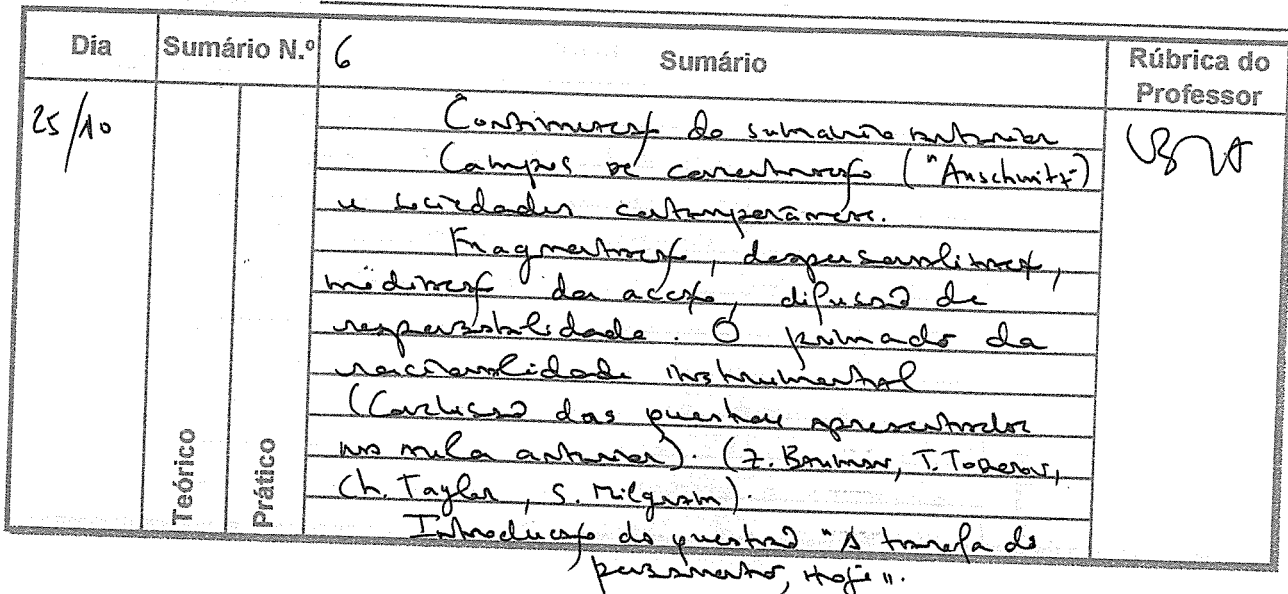 Dia Sumário N.º 6 Sumário Rúbrica do Professor
25/10
Continuação do sumário anterior
Campos de concentração ("Auschwitz")
e sociedades contemporâneas.
Fragmentação, despersonalização,
mediação da acção, difusão de
responsabilidade. O primado da
racionalidade instrumental
(Conclusão das questões apresentadas
na aula anterior). (Z. Bauman, T. Todorov,
Ch. Taylor, S. Milgram).
Introdução da questão "A tarefa do
pensamento, hoje".
Teórico
Prático